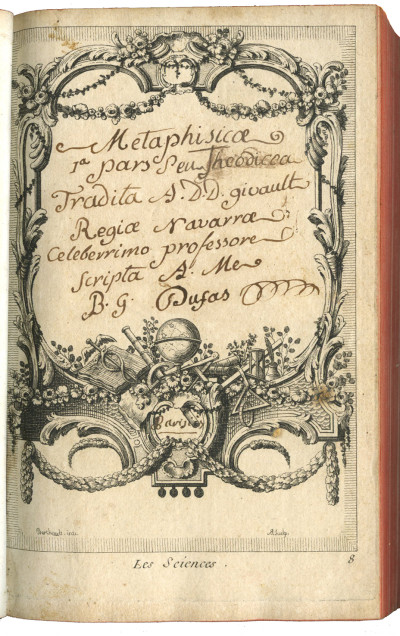 Metaphisicæ
1ª pars Seu Theodicea
Tradita A. D.D. givault
Regiæ Navarræ
Celeberrimo professore
Scripta A. Me
B. g. Dufas
Paris
Les Sciences.
8